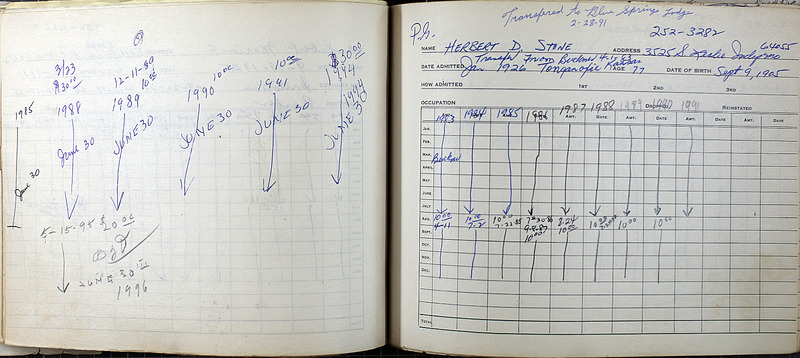 3/23
$30.00
1985
1988
June 30
June 30
12-11-89
1989 10.00
JUNE 30
1990 10.00
JUNE 30
10.00
1991
JUNE 30
$30.00
1994
1994
JUNE 30
5-15-95 $20.00
JUNE 30
1996
Transfered to Blue Springs Lodge
2-28-91
P.G.
252-3282
64055
NAME HERBERT D. STONE ADDRESS 3525 S. Leslie Indp mo
Transfer From Buckner 4-11-83
DATE ADMITTED Jan 1926 Tonganoxie Kansas AGE 77 DATE OF BIRTH Sept 9, 1905
HOW ADMITTED 1ST 2ND 3RD
OCCUPATION DROPPED REINSTATED
1983 1984 1985 1986 1987 1988 1989 1990 1991
AMT. DATE AMT. DATE AMT. DATE
JAN.
FEB.
MAR. Buckner
APRIL
MAY
JUNE
JULY
AUG. 10.00 10.00 10.00 9-24 10.00 10.00 10.00
SEPT. 4-11 7-2 7-22-85 9-8-87 10.00
OCT. 10.00
NOV.
DEC.
TOTAL